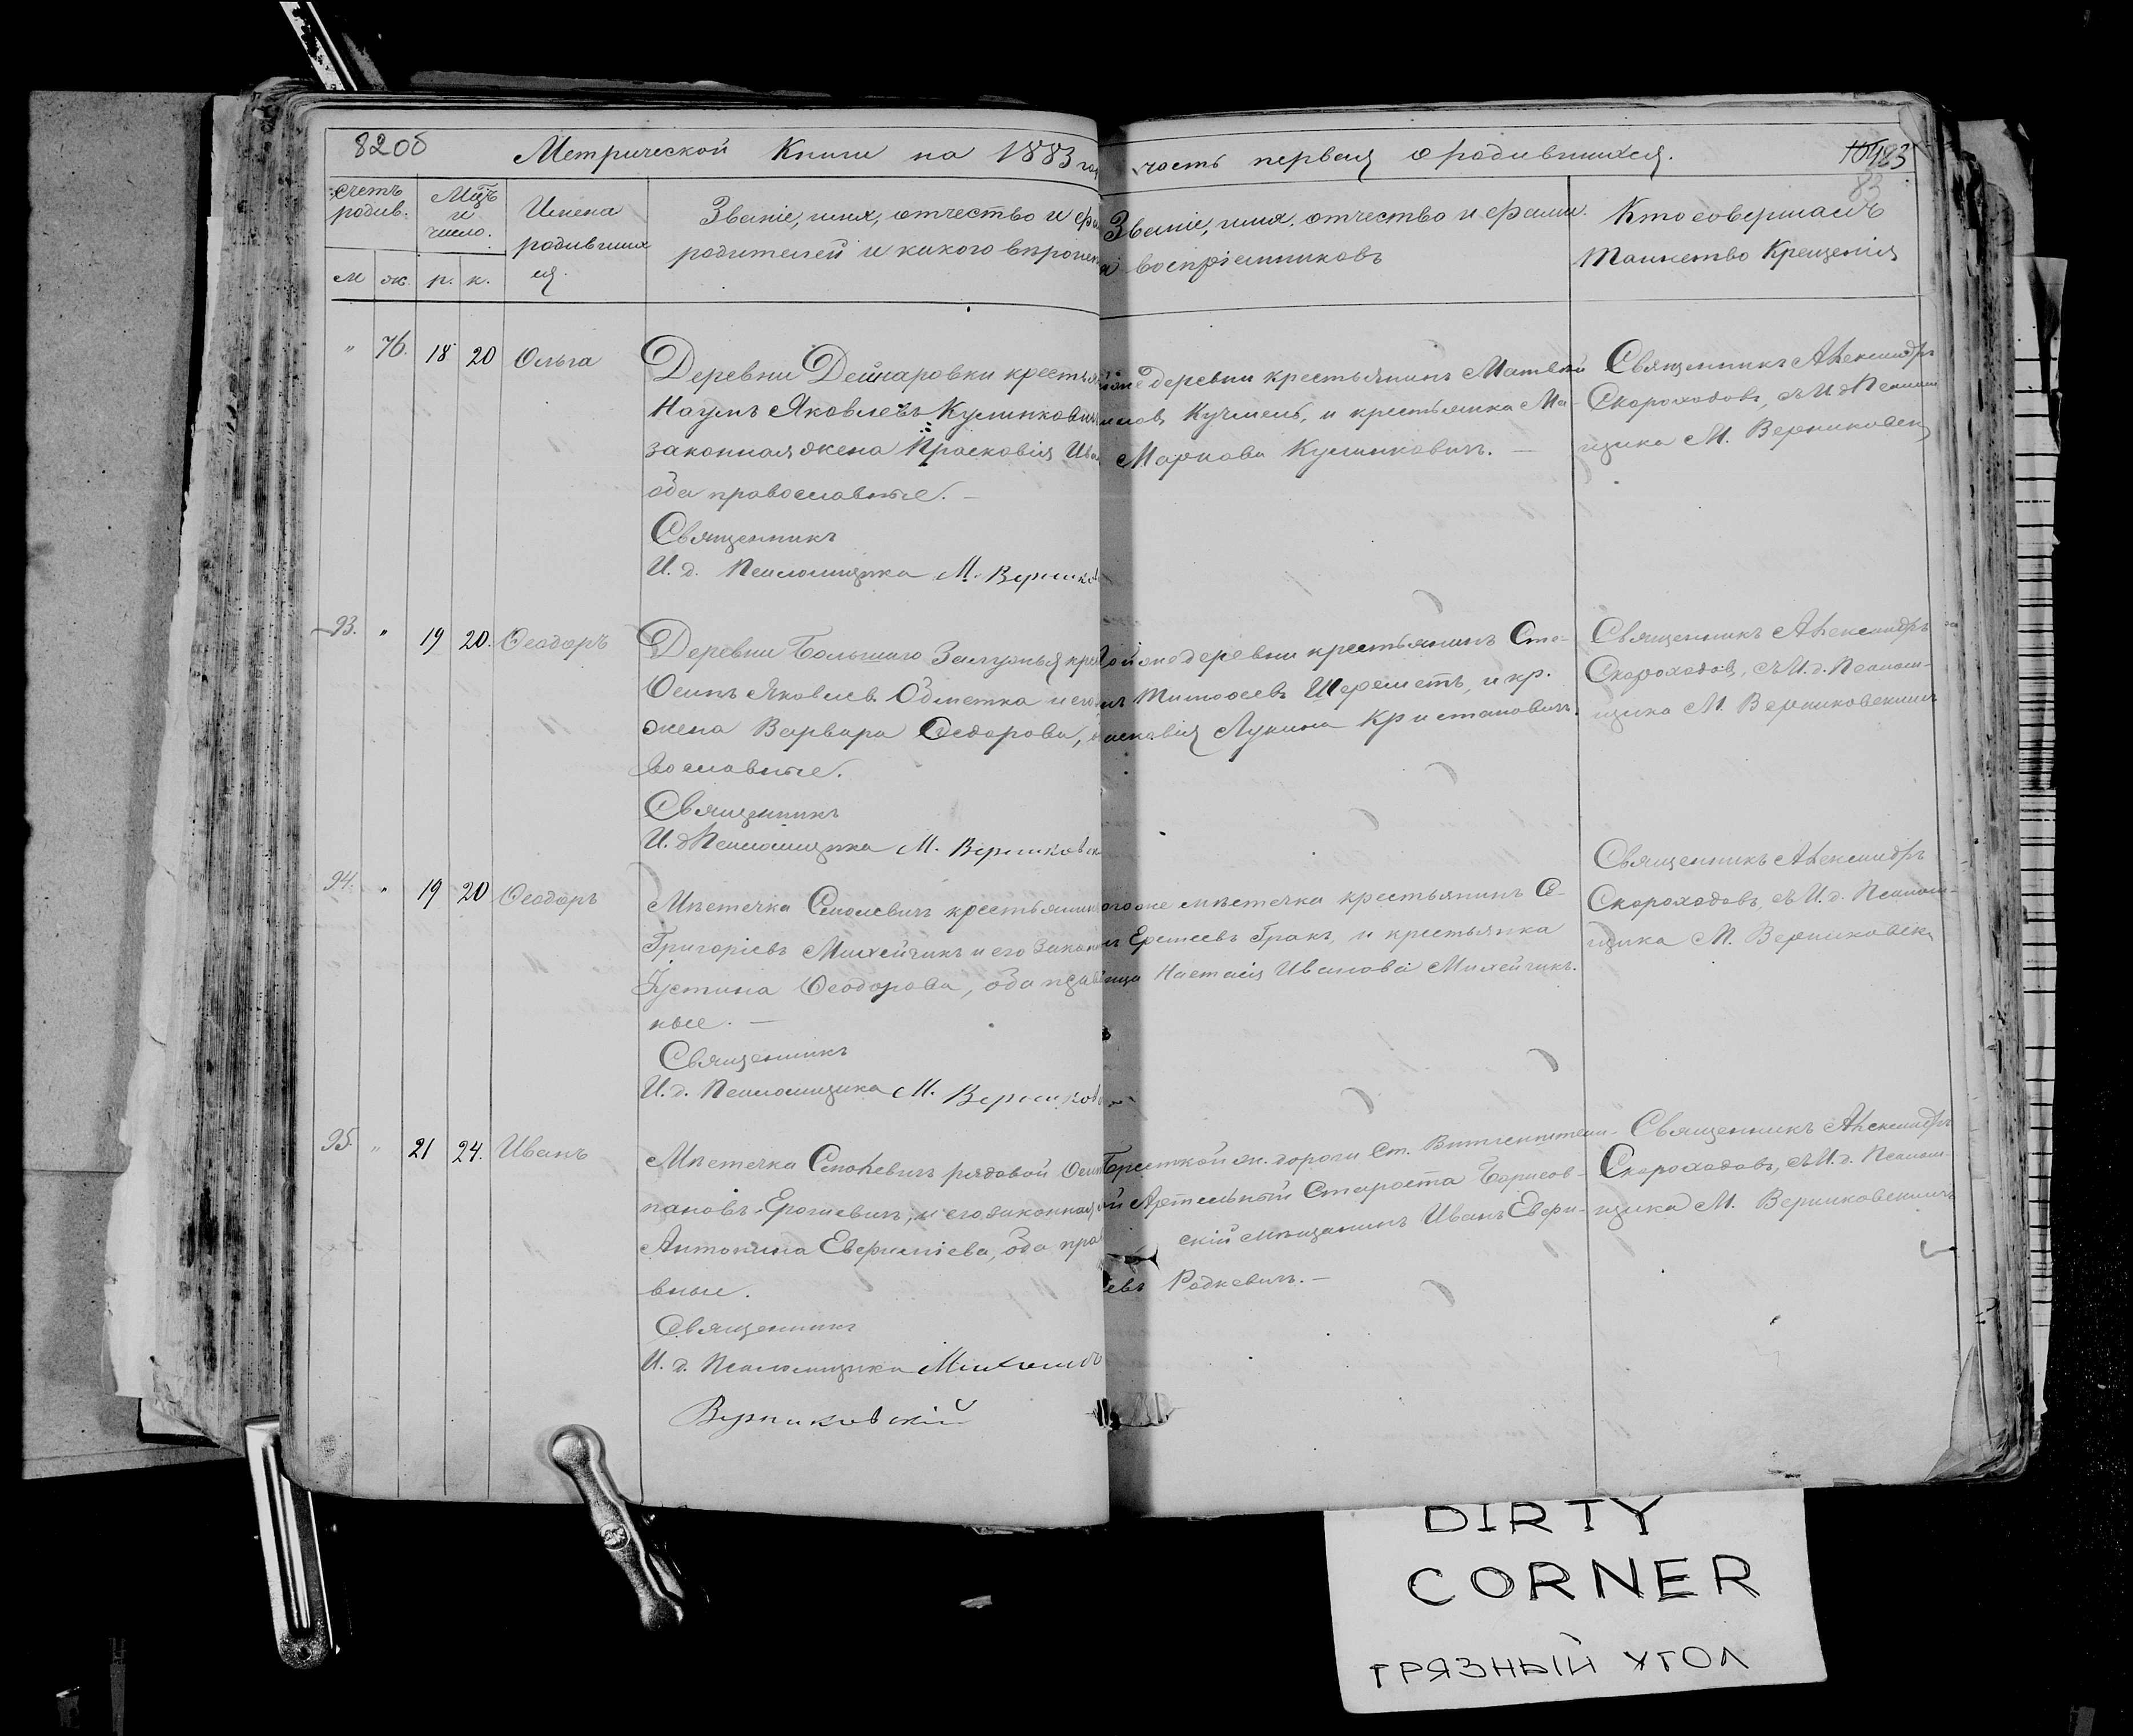 82об Метрической Книги на 1883 год
часть первая о родившихся.
83
83
Счетъ родив:
Мцъ и число.
Имена родившихся
Званіе, имя, отчество и фа
родителей и какого вѣроисп
м ж. р. к.
Званіе, имя, отчество и фами.
воспріемниковъ
Кто совершалъ
таинство Крещенія
" 76. 18 20 Ольга
Деревни Дейнаровки крестья
Наумъ Яковлевъ Кулинкович
законная жена Прасковія Ива
оба православные. —
Священникъ
И. д. Псаломщика М. Верников
же деревни крестьянинъ Матвѣй
Кучмель, и крестьянка Ма-
Маркова Кулинковичъ. —
Священникъ Александръ
Скороходовъ, съ И. д. Псалом
щика М. Верниковск
93. " 19 20. Ѳеодоръ
Деревни Большаго Залужья кре
Осипъ Яковлев. Обметка и его
жена Варвара Ѳедорова,
вославные.
Священникъ
И. д. Псаломщика М. Верниковск
ой же деревни крестьянинъ Сте-
Тимоѳеевъ Шереметъ, и кр.
Лукина Кристановичъ.
Священникъ Александръ
Скороходовъ, съ И. д. Псалом-
щика М. Верниковскимъ
94. " 19 20 Ѳеодоръ
Мѣстечка Смолевичъ крестьянинъ
Григоріевъ Михейчикъ и его закон
Іустина Ѳеодорова, оба прав
ные. —
Священникъ
И. д. Псаломщика М. Верников
ого же мѣстечка крестьянинъ Се-
Еремеевъ Гракъ, и крестьянка
Настасія Иванова Михейчикъ.
Священникъ Александръ
Скороходовъ, съ И. д. Псалом-
щика М. Верниковск
95. " 21 24. Иванъ
Мѣстечка Смолевичъ рядовой Осип
пановъ Ерошевичъ, и его законная
Антонина Евфиміева, оба пра
вные.
Священникъ
И. д. Псаломщика Михаилъ
Верниковскій
Брестской ж. дороги Ст. Витгенштейн-
Артельный Староста Борисов-
скій мѣщанинъ Иванъ Евфи-
евъ Радкевичъ. —
Священникъ Александръ
Скороходовъ, съ И. д. Псалом-
щика М. Верниковскимъ
DIRTY
CORNER
ГРЯЗНЫЙ УГОЛ